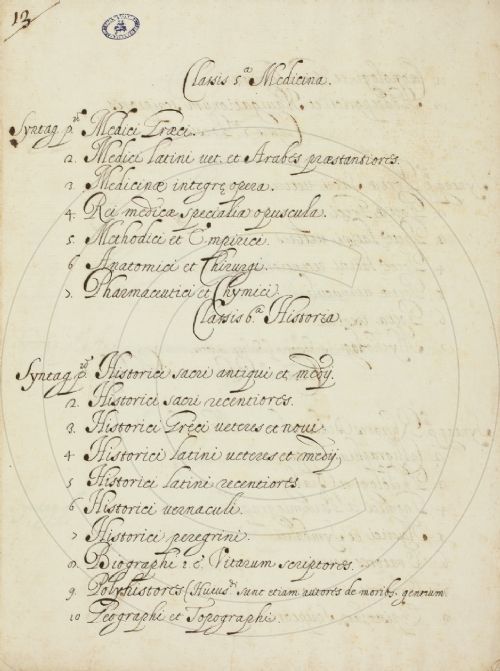 13
Classis 5.ª Medicina.
Syntag p.ª Medici Græci.
2. Medici latini vet. et Arabes præstantiores.
3. Medicinæ integrę opera.
4. Rei medicæ specialia opuscula.
5. Methodici et Empirici.
6 Anatomici et Chirurgi.
7. Pharmaceutici et Chymici.
Classis 6.ª Historia.
Syntag p. Historici sacri antiqui et medij.
2. Historici sacri recentiores.
3. Historici Gręci veteres et noui.
4 Historici latini veteres et medij
5 Historici latini recentiores.
6 Historici vernaculi.
7 Historici peregrini.
8 Biographi Vitarum scriptores.
9. Polyhistores (Huius sunt etiam autores de morib. gentium.
10 Geographi et Topographi.